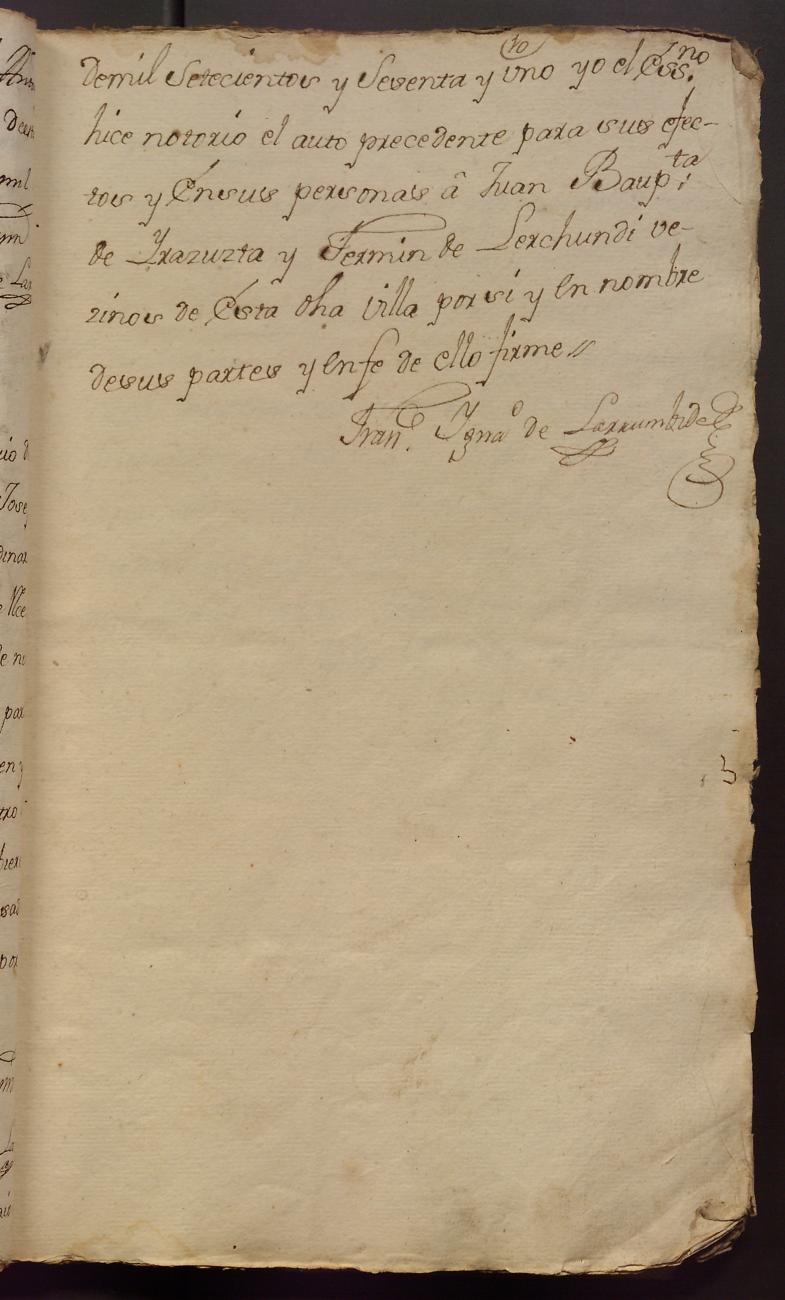 10
demil Setecientos y Sesenta y uno yo el Ess.no
hice notorio el auto precedente para sus efec-
tos y Ensus personas â Juan Baup.ta
de Yrazuzta y Fermin de Lerchundi ve-
zinos de Esta dha villa por si y en nombre
desus partes y en fe de ello firme //
Fran.co Ygna.o de Larrumbide
5